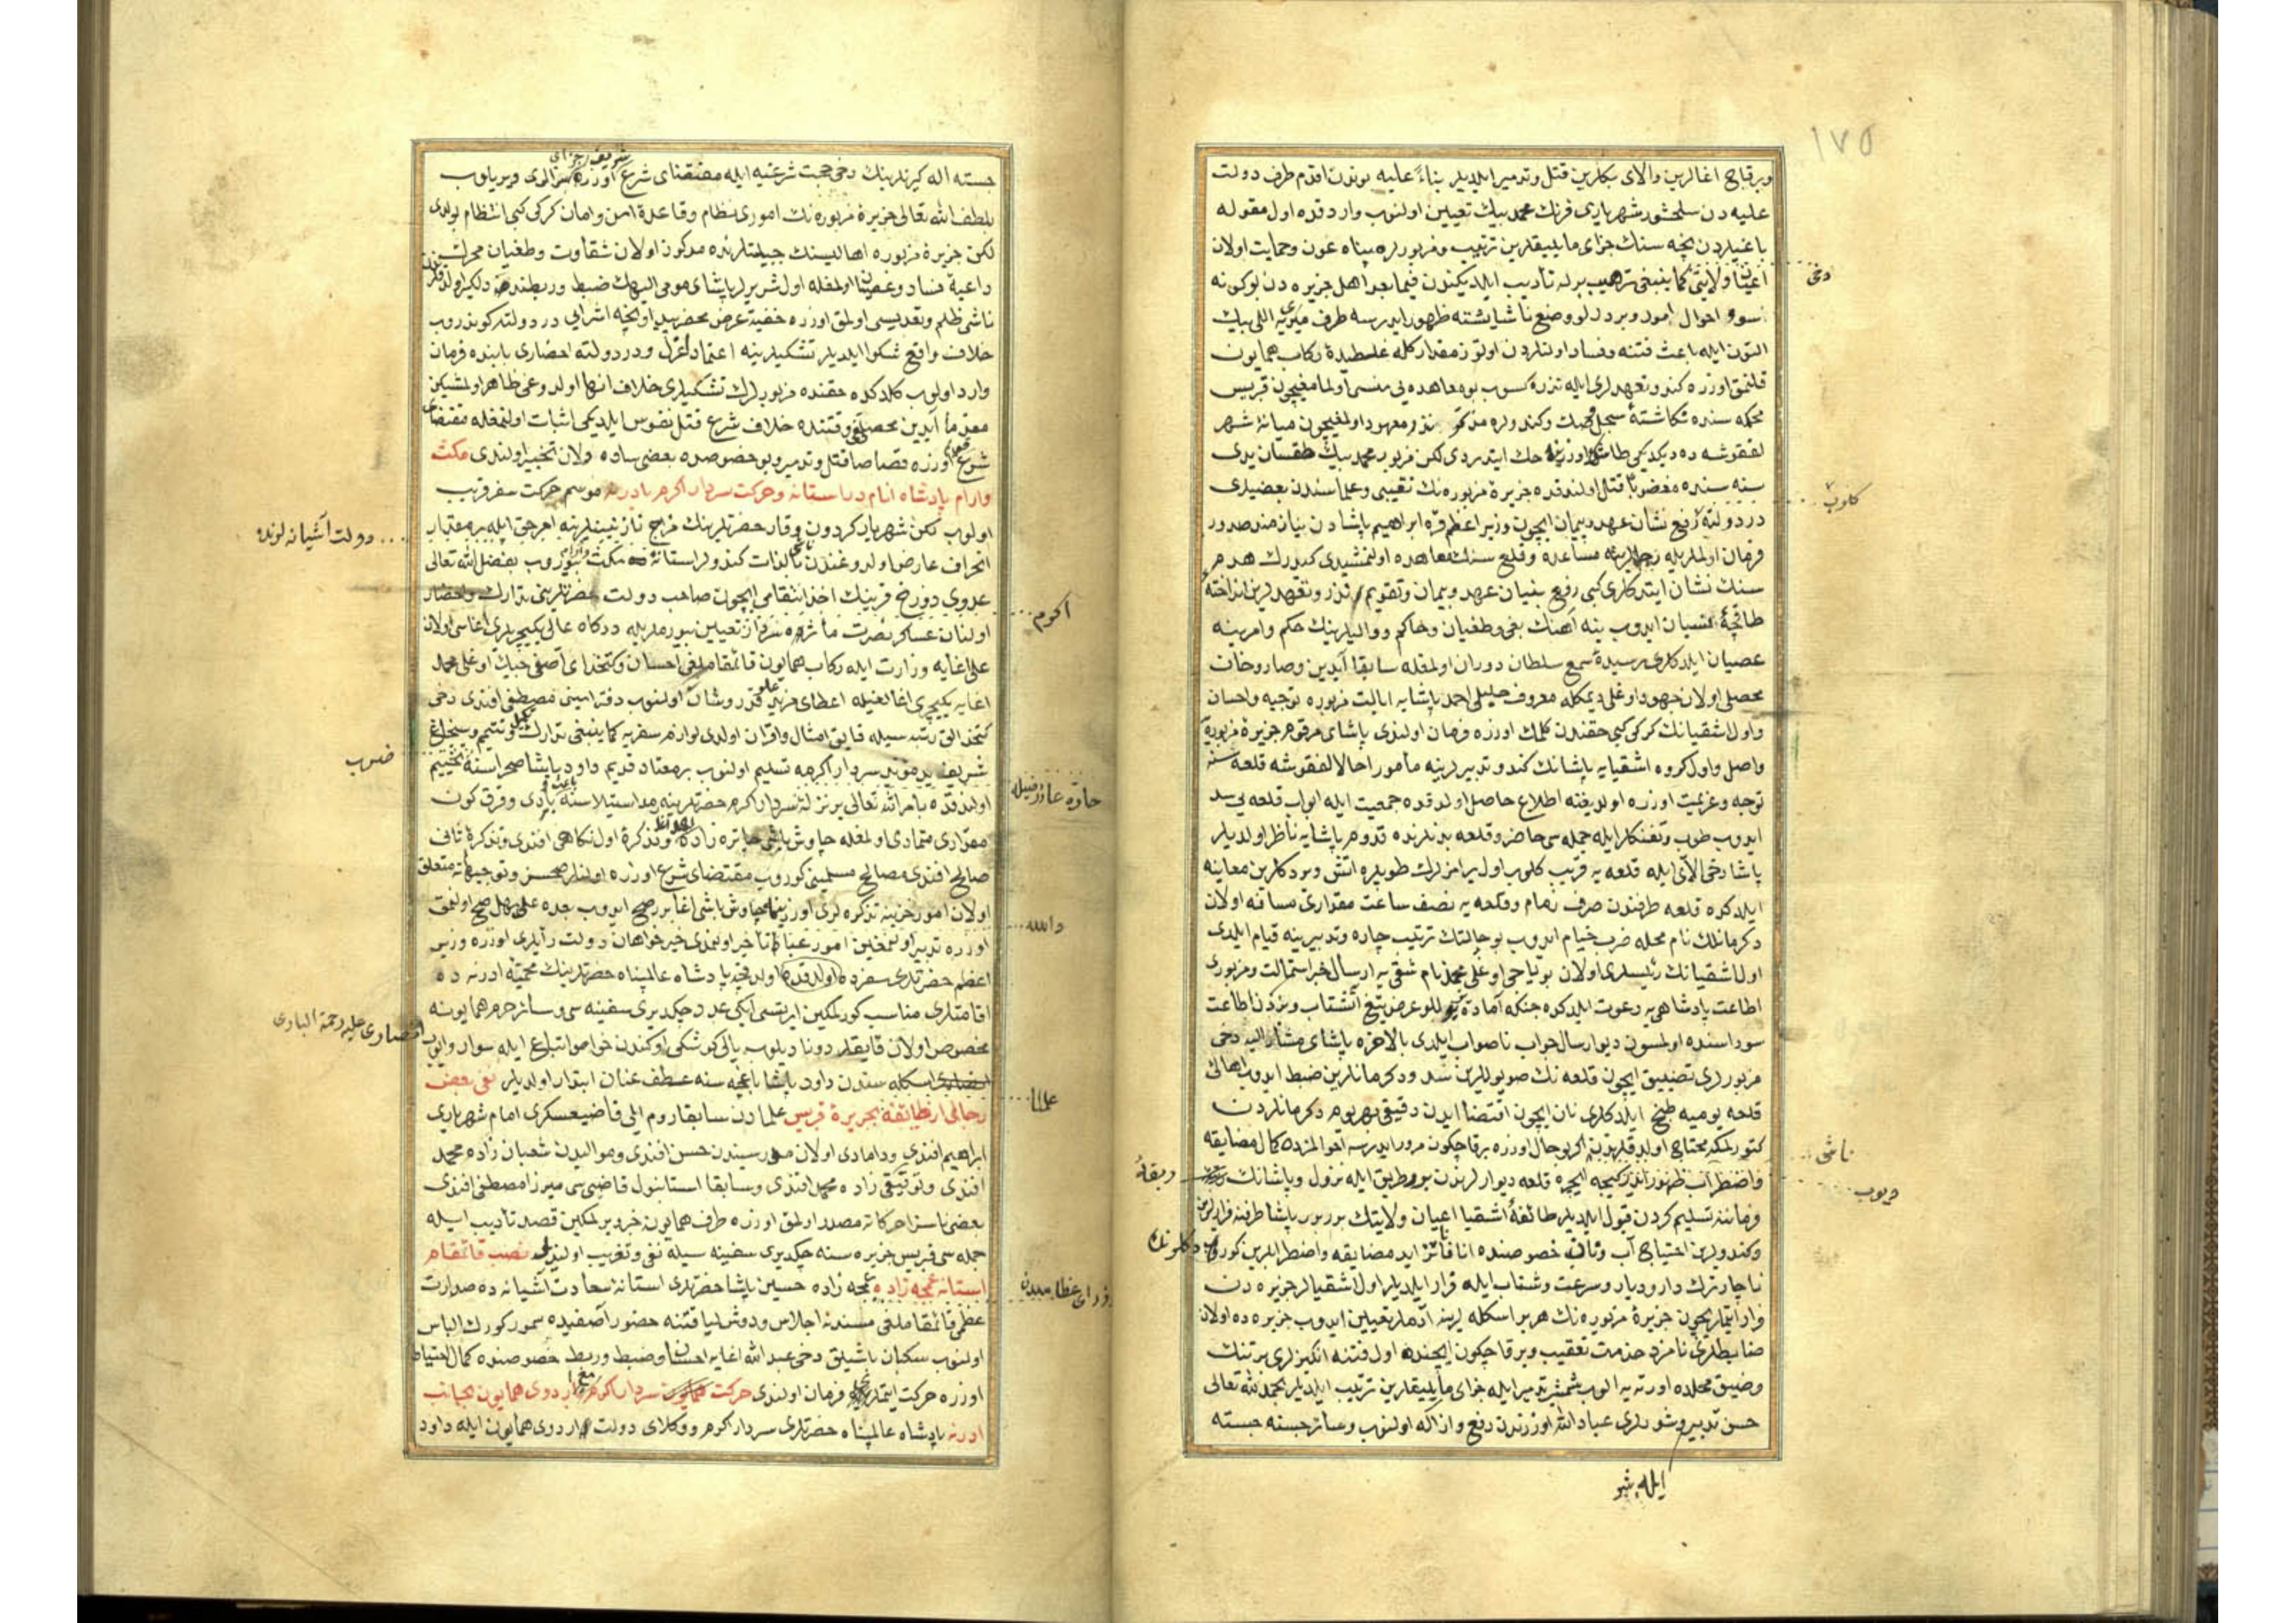 ١٧٥
وبرقاچ اغالرین والای بکلرین قتل وتدمیر ایلدیلر بناءً علیه بوندن اقدم طرف دولت
علیه دن سلحشور شهریاری فرنك محمد بیك تعیین اولنوب واردقده اول مقوله
باغیلردن نیجه سنك جزای مایلیقلرین ترتیب ومزبورلره پناه عون وحمایت اولان
اعیان ولایتی کما ینبغی ترهیب برله تأدیب ایلدیکندن فیما بعد اهل جزیره دن بوکونه
دخی
سوء احوال امور وبر درلو وضع ناشایشته ظهور ایدرسه طرف میری یه اللی بیك
التون ایله باعث فتنه وفساد اولنلردن اوتوز مقدار کله غلطیدهٔ رکاب همایون
قلنمق اوزره کندو تعهدلری ایله نذره کسوب بو معاهده یی منسی اولمامغیچون قبریس
محکمه سنده نکاشتهٔ سجل وکندولره مذکور نذر معهود اولمغیچون میانهٔ شهر
لفقوشه ده دیکدیکی طاش اوزرینه حك ایتدردی لکن مزبور محمد بیك طقسان یدی
سنه سنده مغضوبًا قتل اولندقده جزیرهٔ مزبوره نك نقیبی وعلماسندن بعضیلری
کلوب
در دولته رفع نشان عهد وپیمان ایچون وزیر اعظم قره ابراهیم پاشادن نیازمند صدور
فرمان اولملریله رجالرینه مساعده وقلع سنك معاهده اولنمشیدی کیدرك هدم
سنك نشان ایتدکلری کبی رفع بنیان عهد وپیمان وتقویم نذر وتعهدلرین انداختهٔ
طاقچهٔ نسیان ایدوب ینه آهنك بغی وطغیان وحاکم ووالیلرینك حکم وامرینه
عصیان ایلدکلری رسیدهٔ سمع سلطان دوران اولمغله سابقا آیدین وصاروخان
محصلی اولان جهود اوغلی دیمکله معروف خلیلی احمد پاشایه ایالت مزبوره توجیه واحسان
واول اشقیانك کرکی کبی حقندن کلمك اوزره فرمان اولندی پاشای مرقوم جزیرهٔ مزبوره یه
واصل واول کروه اشقیایه پاشانك کندو تدبیرلرینه مأمور احالا لفقوشه قلعه سنه
توجه وعزیمت اوزره اولدیغنه اطلاع حاصل اولدقده جمعیت ایله ابواب قلعه یی سد
ایدوب طوپ وتفنكلر ایله جمله سی حاضر وقلعه بدنلرنده قدوم پاشایه ناظر اولدیلر
پاشا دخی الای ایله قلعه یه قریب کلوب اول یرامزلرك طوپلره اتش ویردکلرین معاینه
ایلدکده قلعه طرفندن صرف زمام وقلعه یه نصف ساعت مقداری مسافه اولان
دکرمانلك نام محله ضرب خیام ایدوب بو حالتك ترتیب چاره وتدبیرینه قیام ایلدی
اول اشقیانك رئیسلری اولان بویاجی اوغلی محمد نام شقی یه ارسال خبر استمالت ومزبوری
اطاعت پادشاهی یه دعوت ایلدکده جنکه آماده یز للو عرض تیغ آتشتاب ویزدن اطاعت
سوداسنده اولمسون دیو ارسال جواب ناصواب ایلدی بالاخره پاشای مشار الیه دخی
مزبورلری تضییق ایچون قلعه نك صویوللرین سد ودکرمانلرین ضبط ایدوب اهالی
قلعه یومیه طبخ ایلدکلری نان ایچون اقتضا ایدن دقیقی یومیه دکرمانلردن
کتورلمکه محتاج اولدقلرندن اکر بو حال اوزره برقاچ کون مرور ایدرسه احوالمزده کمال مضایقه
ناشی
واضطراب ظهور ایدر کیجه ایچره قلعه دیوارلرندن بر طریق ایله نزول وپاشانك
ربقهٔ
دیوب
فرماننه تسلیم کردن قبول ایلدیلر طائفهٔ اشقیا اعیان ولایتك بربر پاشا طرفنه فرارلرین
وکندولرین احتیاج آب ونان خصوصنده انا فانا زاید مضایقه واضطرابلرین کوروب
دکلو نك
ناچار ترك دار ودیار وسرعت وشتاب ایله قرار ایلدیلر اول اشقیالر جزیره دن
فرار ایتمامك ایچون جزیرهٔ مزبوره نك هر بر اسکله لرینه آدملر تعیین ایدوب جزیره ده اولان
ضابطلری نامزد خدمت تعقیب وبرقاچ کون ایچنده اول فتنه انکیزلری بر تنك
وضیق محلده اورته یه الوب شمشیر تدمیر ایله جزای مایلیقلرین ترتیب ایلدیلر بحمد الله تعالی
حسن تدبیر وشورلری عباد الله اوزرندن دفع وازاله اولنوب وسائر جسته جسته
ایله شو
شریف جزای
جسته اله کیرنلرینك دخی حجت شرعیه ایله مقتضای شرع اوزره سزالری ویریلوب
بلطف الله تعالی جزیرهٔ مزبوره نك اموری نظام وقاعدهٔ امن وامان کرکی کبی انتظام بولدی
لکن جزیرهٔ مزبوره اهالیسنك جبلتلرنده مرکون اولان شقاوت وطغیان محرك
داعیهٔ فساد وعصیان اولمغله اول شریرلر پاشای مومی الیهك ضبط وربطندن دلکیر اولدقلرندن
ناشی ظلم وتعدیسی اولمق اوزره خفیة عرض محضر ایدوب نیجه اشرایی در دولته کوندروب
خلاف واقع شکوا ایلدیلر تشکیلرینه اعتمادًا عزل ودر دولته احضاری بابنده فرمان
وارد اولوب کلدکده حقنده مزبورلرك تشکیلری خلاف انها اولدوغی ظاهر اولمشیکن
مقدمًا آیدین محصللغی وقتنده خلاف شرع قتل نفوس ایلدیکی اثبات اولنمغله مقتضای
شرع قویم اوزره قصاصا قتل وتدمیر وبو خصوصده بعضی ساده دلان تخییر اولندی مکث
وارام پادشاه انام در استانه وحرکت سردار اکرم بادرنه موسم حرکت سفر قریب
اولوب لکن شهریار کردون وقار حضرتلرینك مزاج نازنینلرینه امر حق ایله بر مقدار
دولت آشیانه لرنده
انحراف عارض اولدوغندن بالذات کندولر استانهٔ مکث وآرام بیوروب بفضل الله تعالی
عدوی دوزخ قرینك اخذ انتقامی ایچون صاحب دولت حضرتلرینی تدارك واحضار
اکرم
اولنان عساکر نصرت مأثره سردار تعیین بیورملریله درکاه عالی یکیچریلری اغاسی اولان
علی اغایه وزارت ایله رکاب همایون قائمقاملغی احسان وکتخدای آصفی جبك اوغلی محمد
اغایه یکیچری اغالغیله اعطای مزید علو قدر وشان اولنوب دفتر امینی مصطفی افندی دخی
کتخدالق رتبه سیله فایق امثال واقران اولدی لوازم سفریه کما ینبغی تدارك وتکمیل وتتمیم وسنجاغ
شریف ید مؤید سردار اکرمه تسلیم اولنوب بر معتاد قدیم داود پاشا صحراسنه تخییم
ضرب
اولندقده بامر الله تعالی بر نزله سردار اکرم حضرتلرینه مد استیلاسنه بادی وقرق کون
حادهٔ عادر قبیله
مقداری متمادی اولمغله چاوش باشی جاتره زاده وتذکرهٔ اول نکاهی افندی وتذکرهٔ ثانی
صالح افندی مصالح مسلمینی کوروب مقتضای شرع اوزره اولنلر صح وتوجیهاته متعلق
اولان امور خزینه تذکره لری اوزرینه چاوش باشی اغا بر صح ایدوب بعده علی کل صح اولنمق
والله
اوزره تدبیر اولنمغین امور عباد تأخر اولنمدی خیرخواهان دولت رأیلری اوزره وزیر
اعظم حضرتلری سفرده اولدقده اولدقجه پادشاه عالمپناه حضرتلرینك محمیهٔ ادرنه ده
اقامتلری مناسب کورلمکین ایرتسی ایکی عدد چکدیری سفینه سی وسائر حرم همایونه
مخصوص اولان قایقلر دونادیلوب یالی کوشکی اوکندن خواص اتباع ایله سوار وایوب
انصاری علیه رحمة الباری
انصاری اسکله سندن داود پاشا باغچه سنه عطف عنان ابتدار اولدیلر نفی بعض
رجال از طائفه بجزیرهٔ قبریس علمادن سابقا روم ایلی قاضیعسکری امام شهریاری
علما
ابراهیم افندی ودامادی اولان مدرسیندن حسن افندی وموالیدن شعبان زاده محمد
افندی وتوقیعی زاده محمد افندی وسابقا استانبول قاضیسی میرزا مصطفی افندی
بعضی ناسزا حرکاته مصدر اولمق اوزره طرف همایونه خبر ویرلمکین قصد تأدیب ایله
جمله سی قبریس جزیره سنه چکدیری سفینه سیله نفی وتغریب اولندیلر نصب قائمقام
استانه عمجه زاده عمجه زاده حسین پاشا حضرتلری استانهٔ سعادت آشیانه ده صدارت
وزرای عظامدن
عظمی قائمقاملغی مسندنه اجلاس ودوش لیاقتنه حضور آصفیده سمور کورك الباس
اولنوب سکبان باشیلق دخی عبد الله اغایه احسان وضبط وربط خصوصنده کمال احتیاط
اوزره حرکت ایتملریچون فرمان اولندی حرکت همایون سردار اکرم مع اردوی همایون بجانب
ادرنه پادشاه عالمپناه حضرتلری سردار اکرم ووکلای دولت اردوی همایون ایله داود